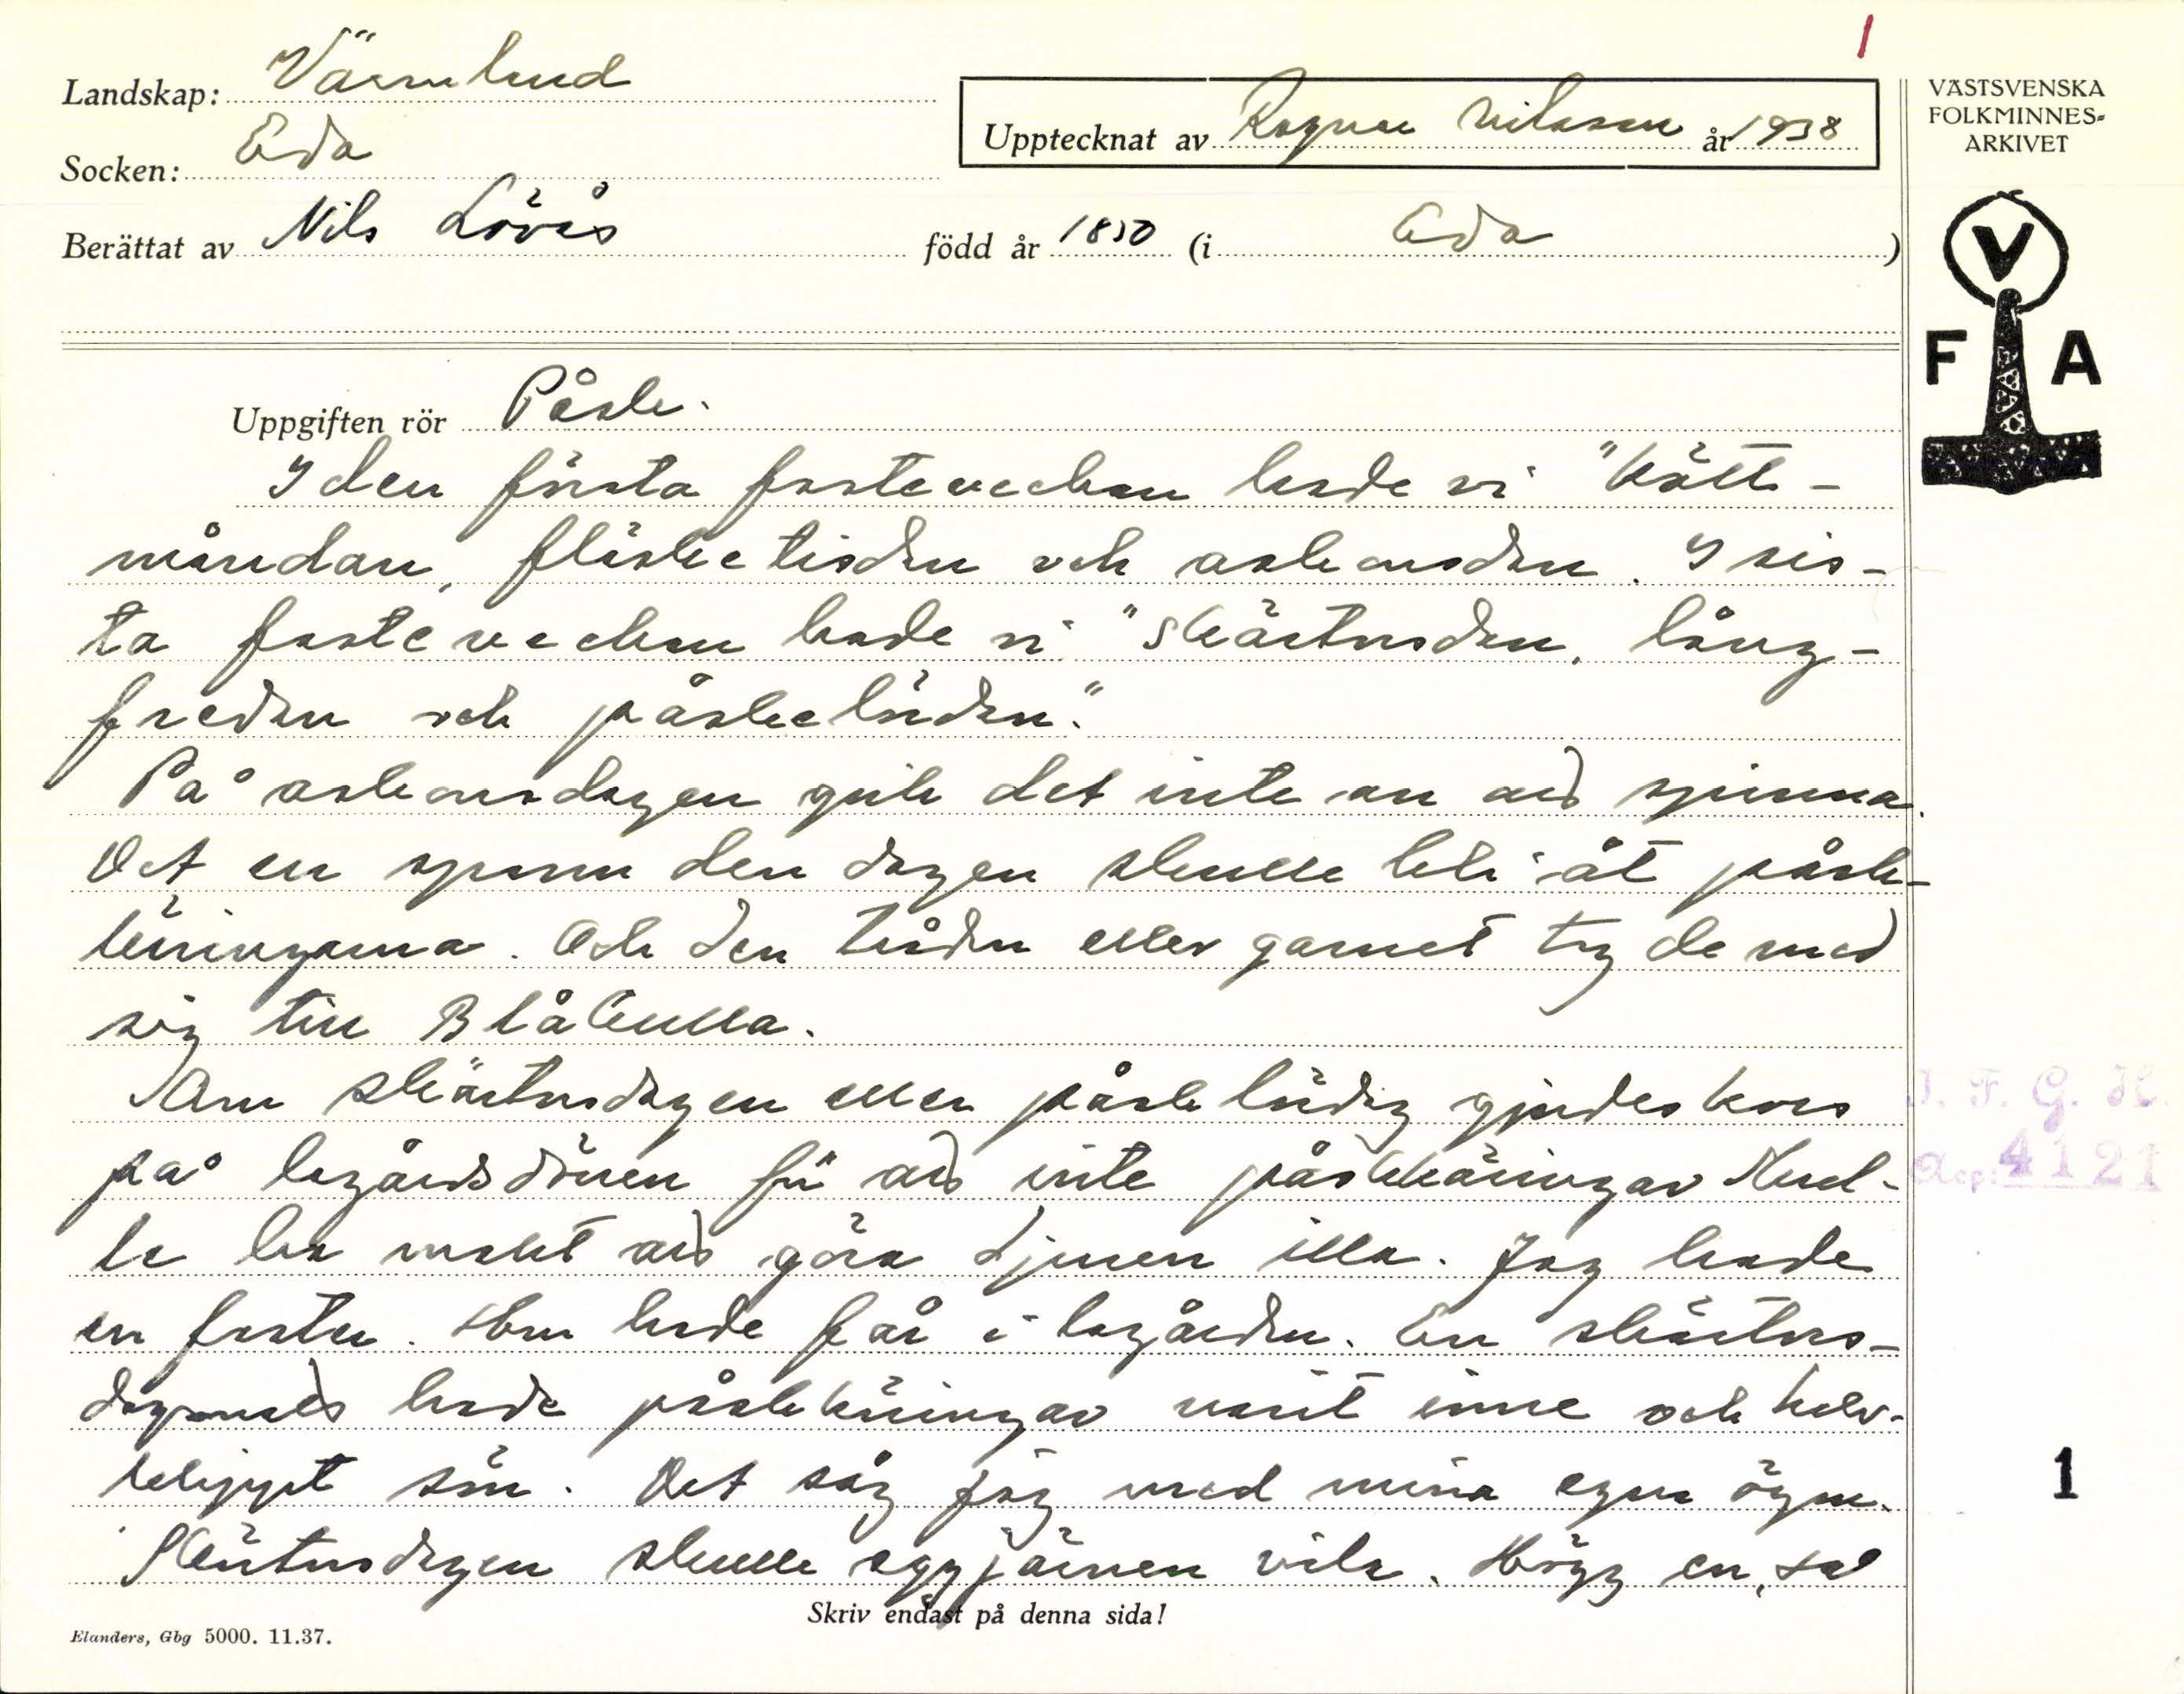 1
Landskap: Värmland
Socken: Eda
Upptecknat av Ragnar Nilsson år 1938
Berättat av Nils Lövås född år 1850 (i Eda)
VÄSTSVENSKA
FOLKMINNES-
ARKIVET
V
F A
Uppgiften rör Påsk.
I den första fasteveckan hade vi "kött-
måndan, fläsketisdan och askonsdan. I sis-
ta fasteveckan hade vi "skärtorsdan, lång-
fredan och påskelördan."
På askonsdagen gick det inte an att spinna.
Det en spann den dagen skulle bli åt påsk-
käringarna. Och den tråden eller garnet tog de med
sig till Blåkulla.
Om skärtorsdagen eller påsklördag gjordes kors
på lagårdsdörren för att inte påskkäringar skul-
le ha makt att göra djuren illa. Jag hade
en faster. Hon hade får i lagården. En skärtors-
dagsnatt hade påskkäringar varit inne och halv-
klippt dom. Det såg jag med mina egna ögon.
Skärtorsdagen skulle eggjärnen vila. Högg en, så
J. F. G. H.
Acc: 4121
1
Skriv endast på denna sida!
Elanders, Gbg 5000. 11.37.